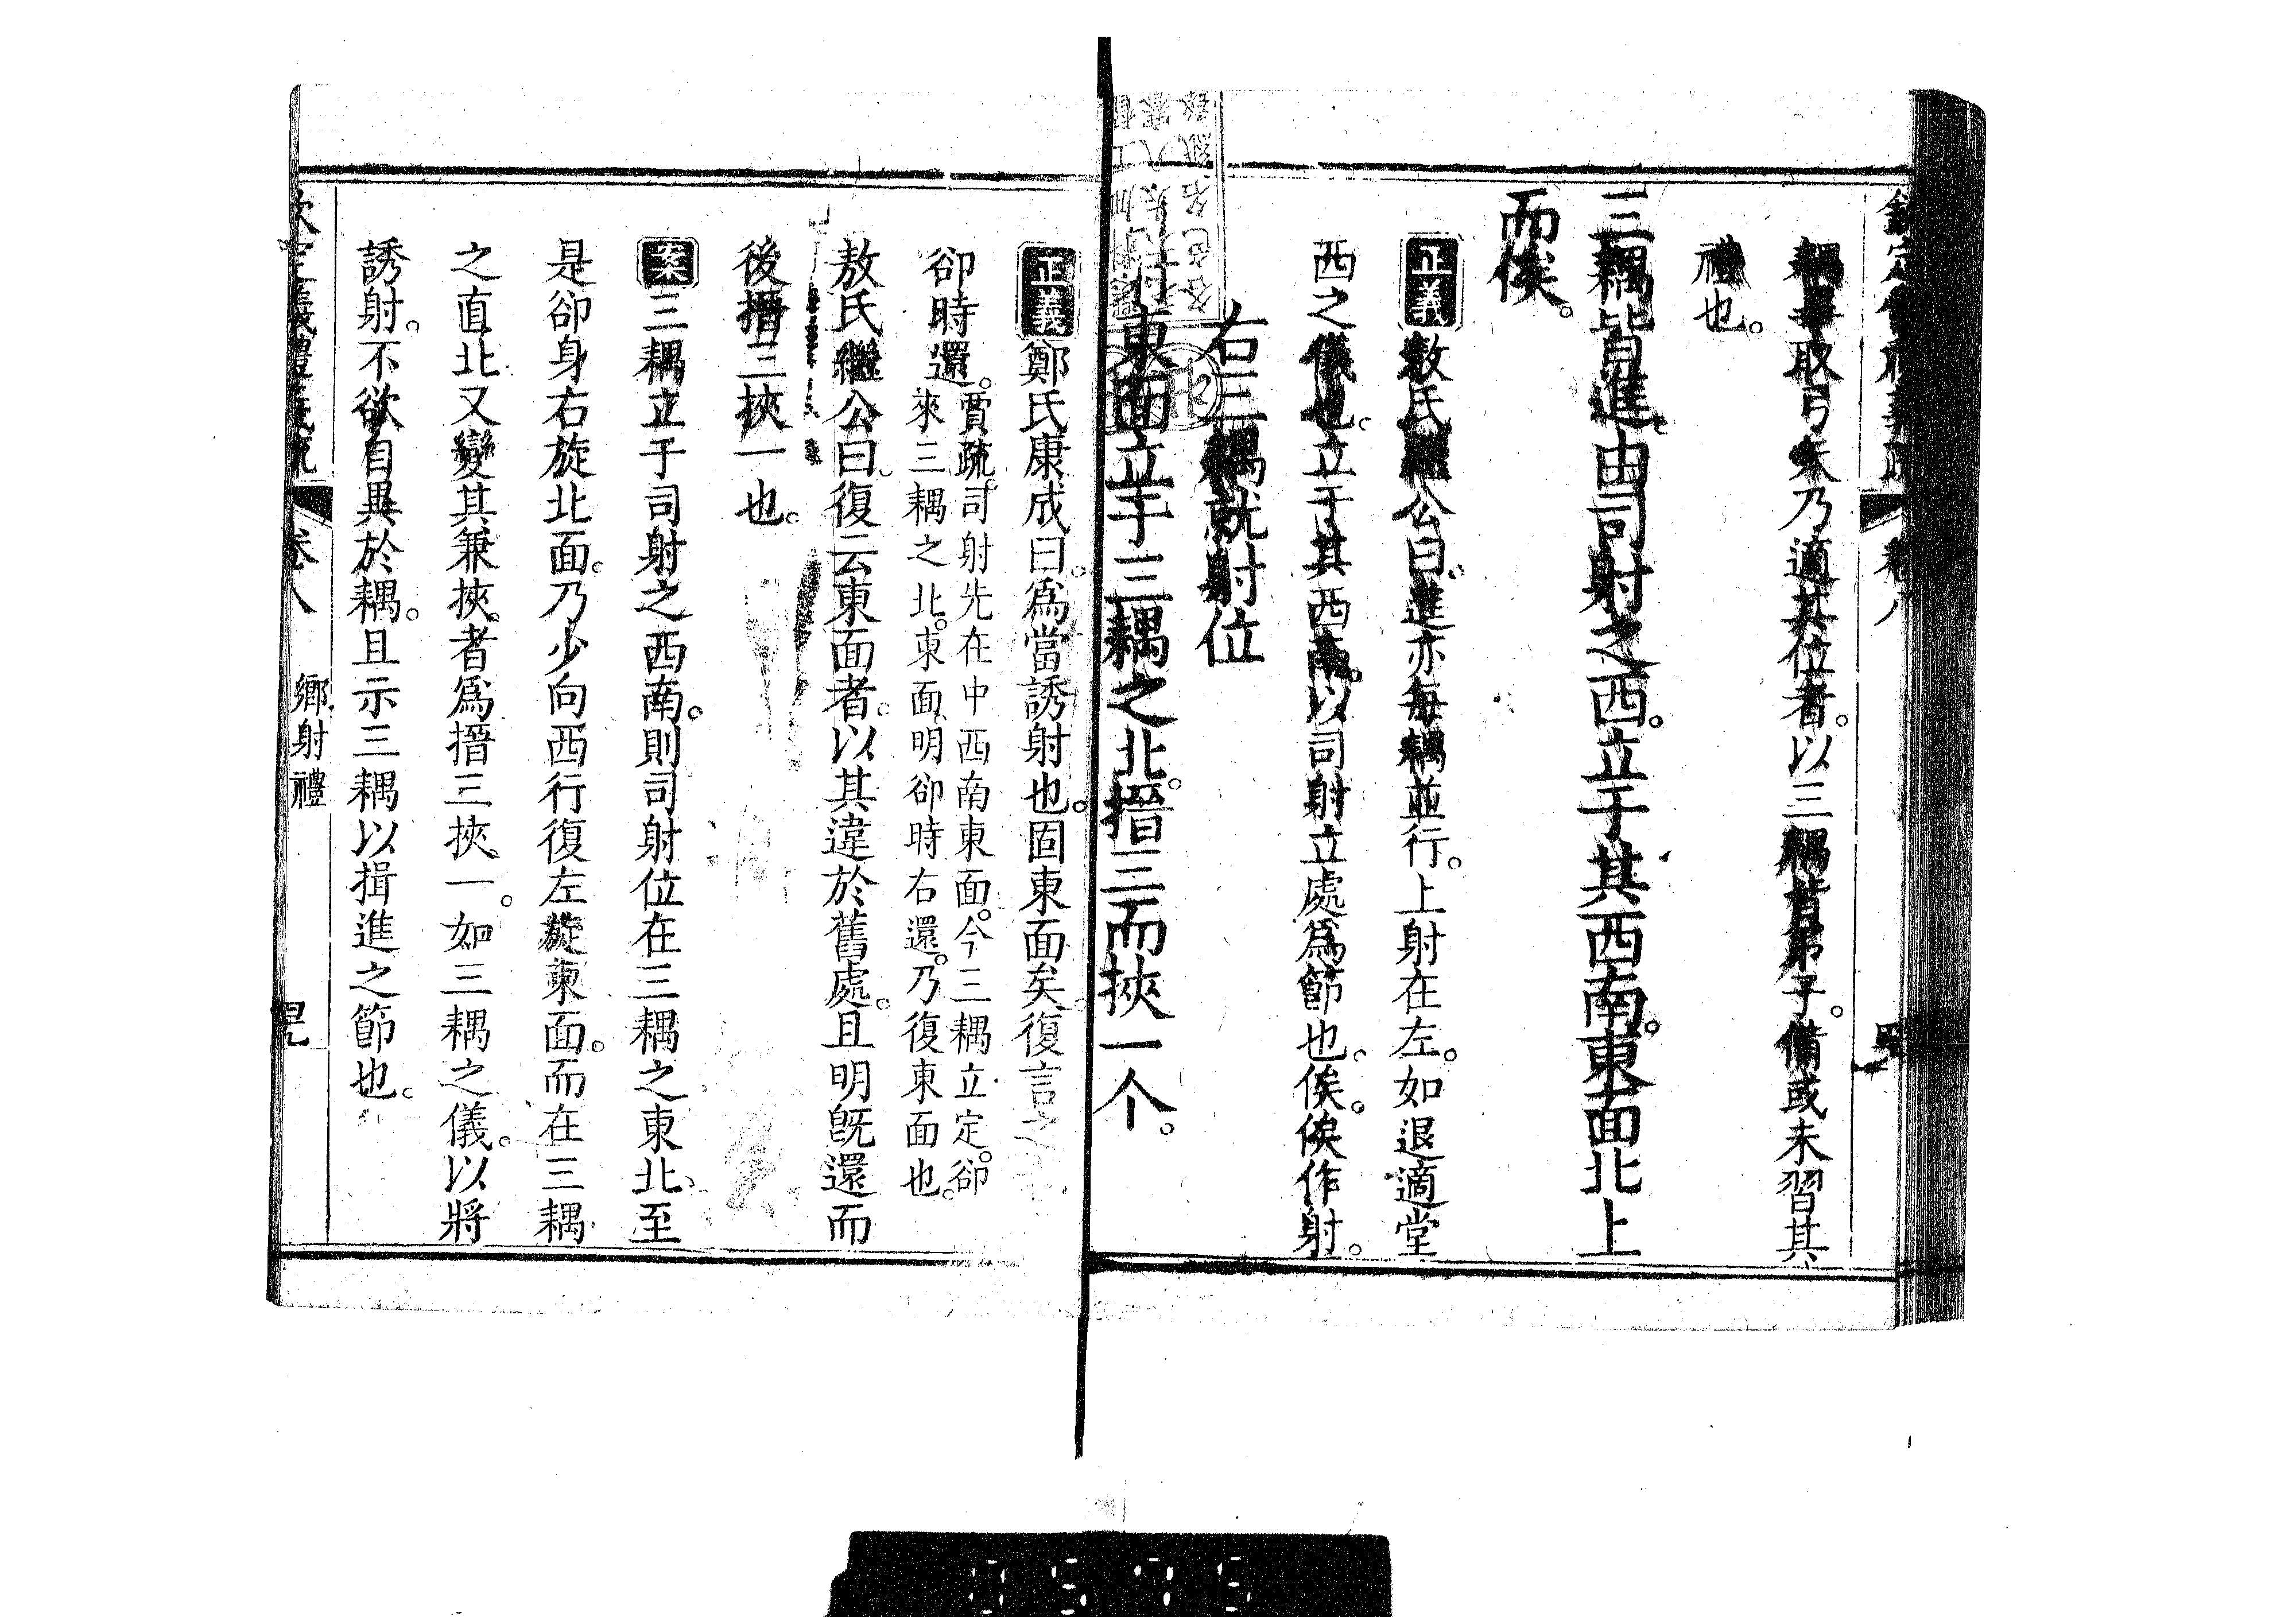 耦每取弓矢乃適其位者。以三耦皆弟子。備或未習其
禮也。
三耦皆進。由司射之西。立于其西南。東面北上
而俟。
正義敖氏繼公曰。進亦每耦並行。上射在左。如退適堂
西之儀也。立于其西南。以司射立處爲節也。俟。俟作射。
右三耦就射位
東面立于三耦之北。搢三而挾一个。
正義鄭氏康成曰。爲當誘射也。固東面矣。復言之
卻時還。賈疏。司射先在中西南東面。今三耦立定。卻
來三耦之北。東面。明卻時右還。乃復東面也。
敖氏繼公曰。復云東面者。以其違於舊處。且明旣還而
後搢三挾一也。
案三耦立于司射之西南。則司射位在三耦之東北。至
是卻身右旋北面。乃少向西行復左旋東面。而在三耦
之直北又變其兼挾。者爲搢三挾一。如三耦之儀。以將
誘射。不欲自異於耦。且示三耦以揖進之節也。
卷八 鄉射禮